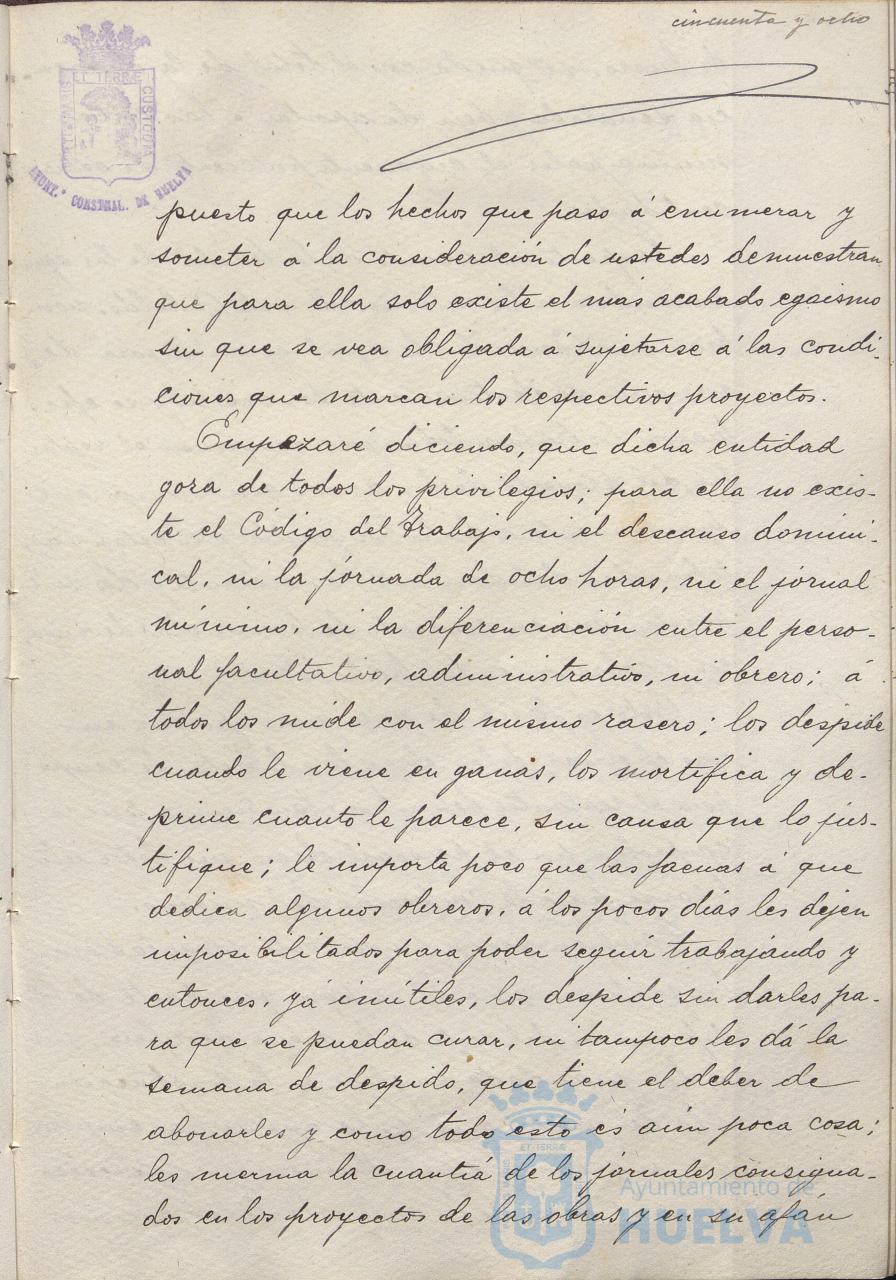 cincuenta y ocho
ET TERRÆ
CUSTODIA
AYUNT.º CONSTNAL. DE HUELVA
puesto que los hechos que paso á enumerar y
someter á la consideración de ustedes demuestran
que para ella solo existe el más acabado egoismo
sin que se vea obligada á sujetarse á las condi-
ciones que marcan los respectivos proyectos.
Empezaré diciendo, que dicha entidad
goza de todos los privilegios; para ella no exis-
te el Código del Trabajo, ni el descanso domini-
cal, ni la jornada de ocho horas, ni el jornal
mínimo, ni la diferenciación entre el perso-
nal facultativo, administrativo, ni obrero; á
todos los mide con el mismo rasero; los despide
cuando le viene en ganas, los mortifica y de-
prime cuanto le parece, sin causa que lo jus-
tifique; le importa poco que las faenas á que
dedica algunos obreros, á los pocos días les dejen
imposibilitados para poder seguir trabajando y
entonces, yá inútiles, los despide sin darles pa-
ra que se puedan curar, ni tampoco les dá la
semana de despido, que tiene el deber de
abonarles y como todo esto és aún poca cosa;
les merma la cuantiá de los jornales consigna-
dos en los proyectos de las obras y en su afán
ET TERRÆ
Ayuntamiento de
HUELVA